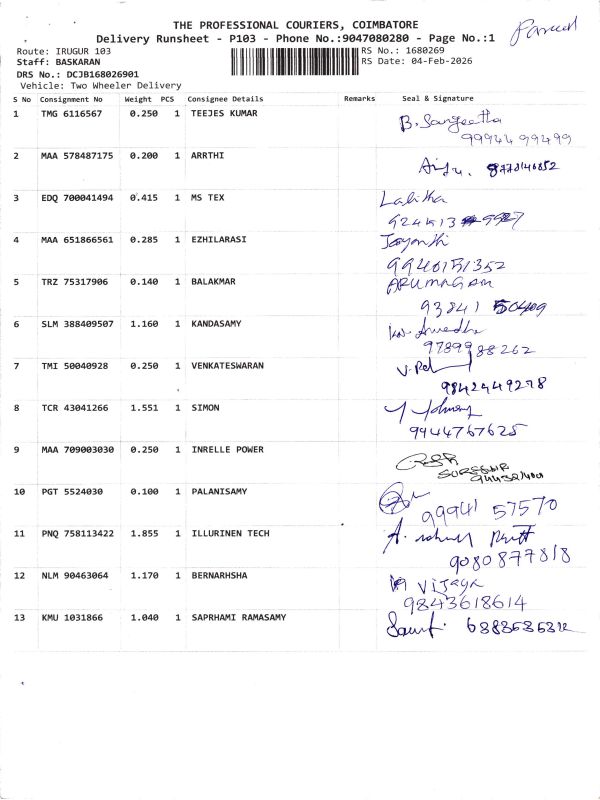 THE PROFESSIONAL COURIERS, COIMBATORE
Delivery Runsheet - P103 - Phone No.:9047080280 - Page No.:1
Route: IRUGUR 103
RS No.: 1680269
Staff: BASKARAN
RS Date: 04-Feb-2026
DRS No.: DCJB168026901
Vehicle: Two Wheeler Delivery
S No Consignment No Weight PCS Consignee Details Remarks Seal & Signature
1 TMG 6116567 0.250 1 TEEJES KUMAR B. Sangeetha
9994499499
2 MAA 578487175 0.200 1 ARRTHI
3 EDQ 700041494 0.415 1 MS TEX Lalitha
4 MAA 651866561 0.285 1 EZHILARASI Jayanthi
9940151352
5 TRZ 75317906 0.140 1 BALAKMAR ARUMAGAM
93841 50409
6 SLM 388409507 1.160 1 KANDASAMY
9789988262
7 TMI 50040928 0.250 1 VENKATESWARAN
9842449278
8 TCR 43041266 1.551 1 SIMON
9944767625
9 MAA 709003030 0.250 1 INRELLE POWER
10 PGT 5524030 0.100 1 PALANISAMY
99941 57570
11 PNQ 758113422 1.855 1 ILLURINEN TECH
9080877818
12 NLM 90463064 1.170 1 BERNARHSHA VIJAYA
9843618614
13 KMU 1031866 1.040 1 SAPRHAMI RAMASAMY